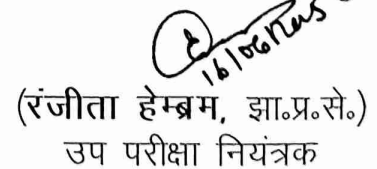 16/06/2025
(रंजीता हेम्ब्रम, झा॰प्र॰से॰)
उप परीक्षा नियंत्रक